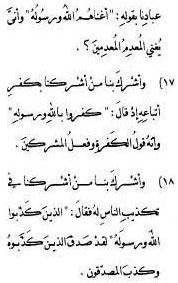 عبادنا بقوله: "أغناهم الله ورسوله" وأنّى
يغني المعدم المعدمين؟.
١٧) وأشرك بنا من أشركنا بكفر
أتباعه إذ قال: "كفروا بالله ورسوله"
وإنه قول الكفرة وفعل المشركين.
١٨) وأشرك بنا من أشركنا في
تكذيب الناس له فقال: "الذين كذبوا
الله ورسوله" لقد صدق الذين كذّبوه
وكذب المصدقون.